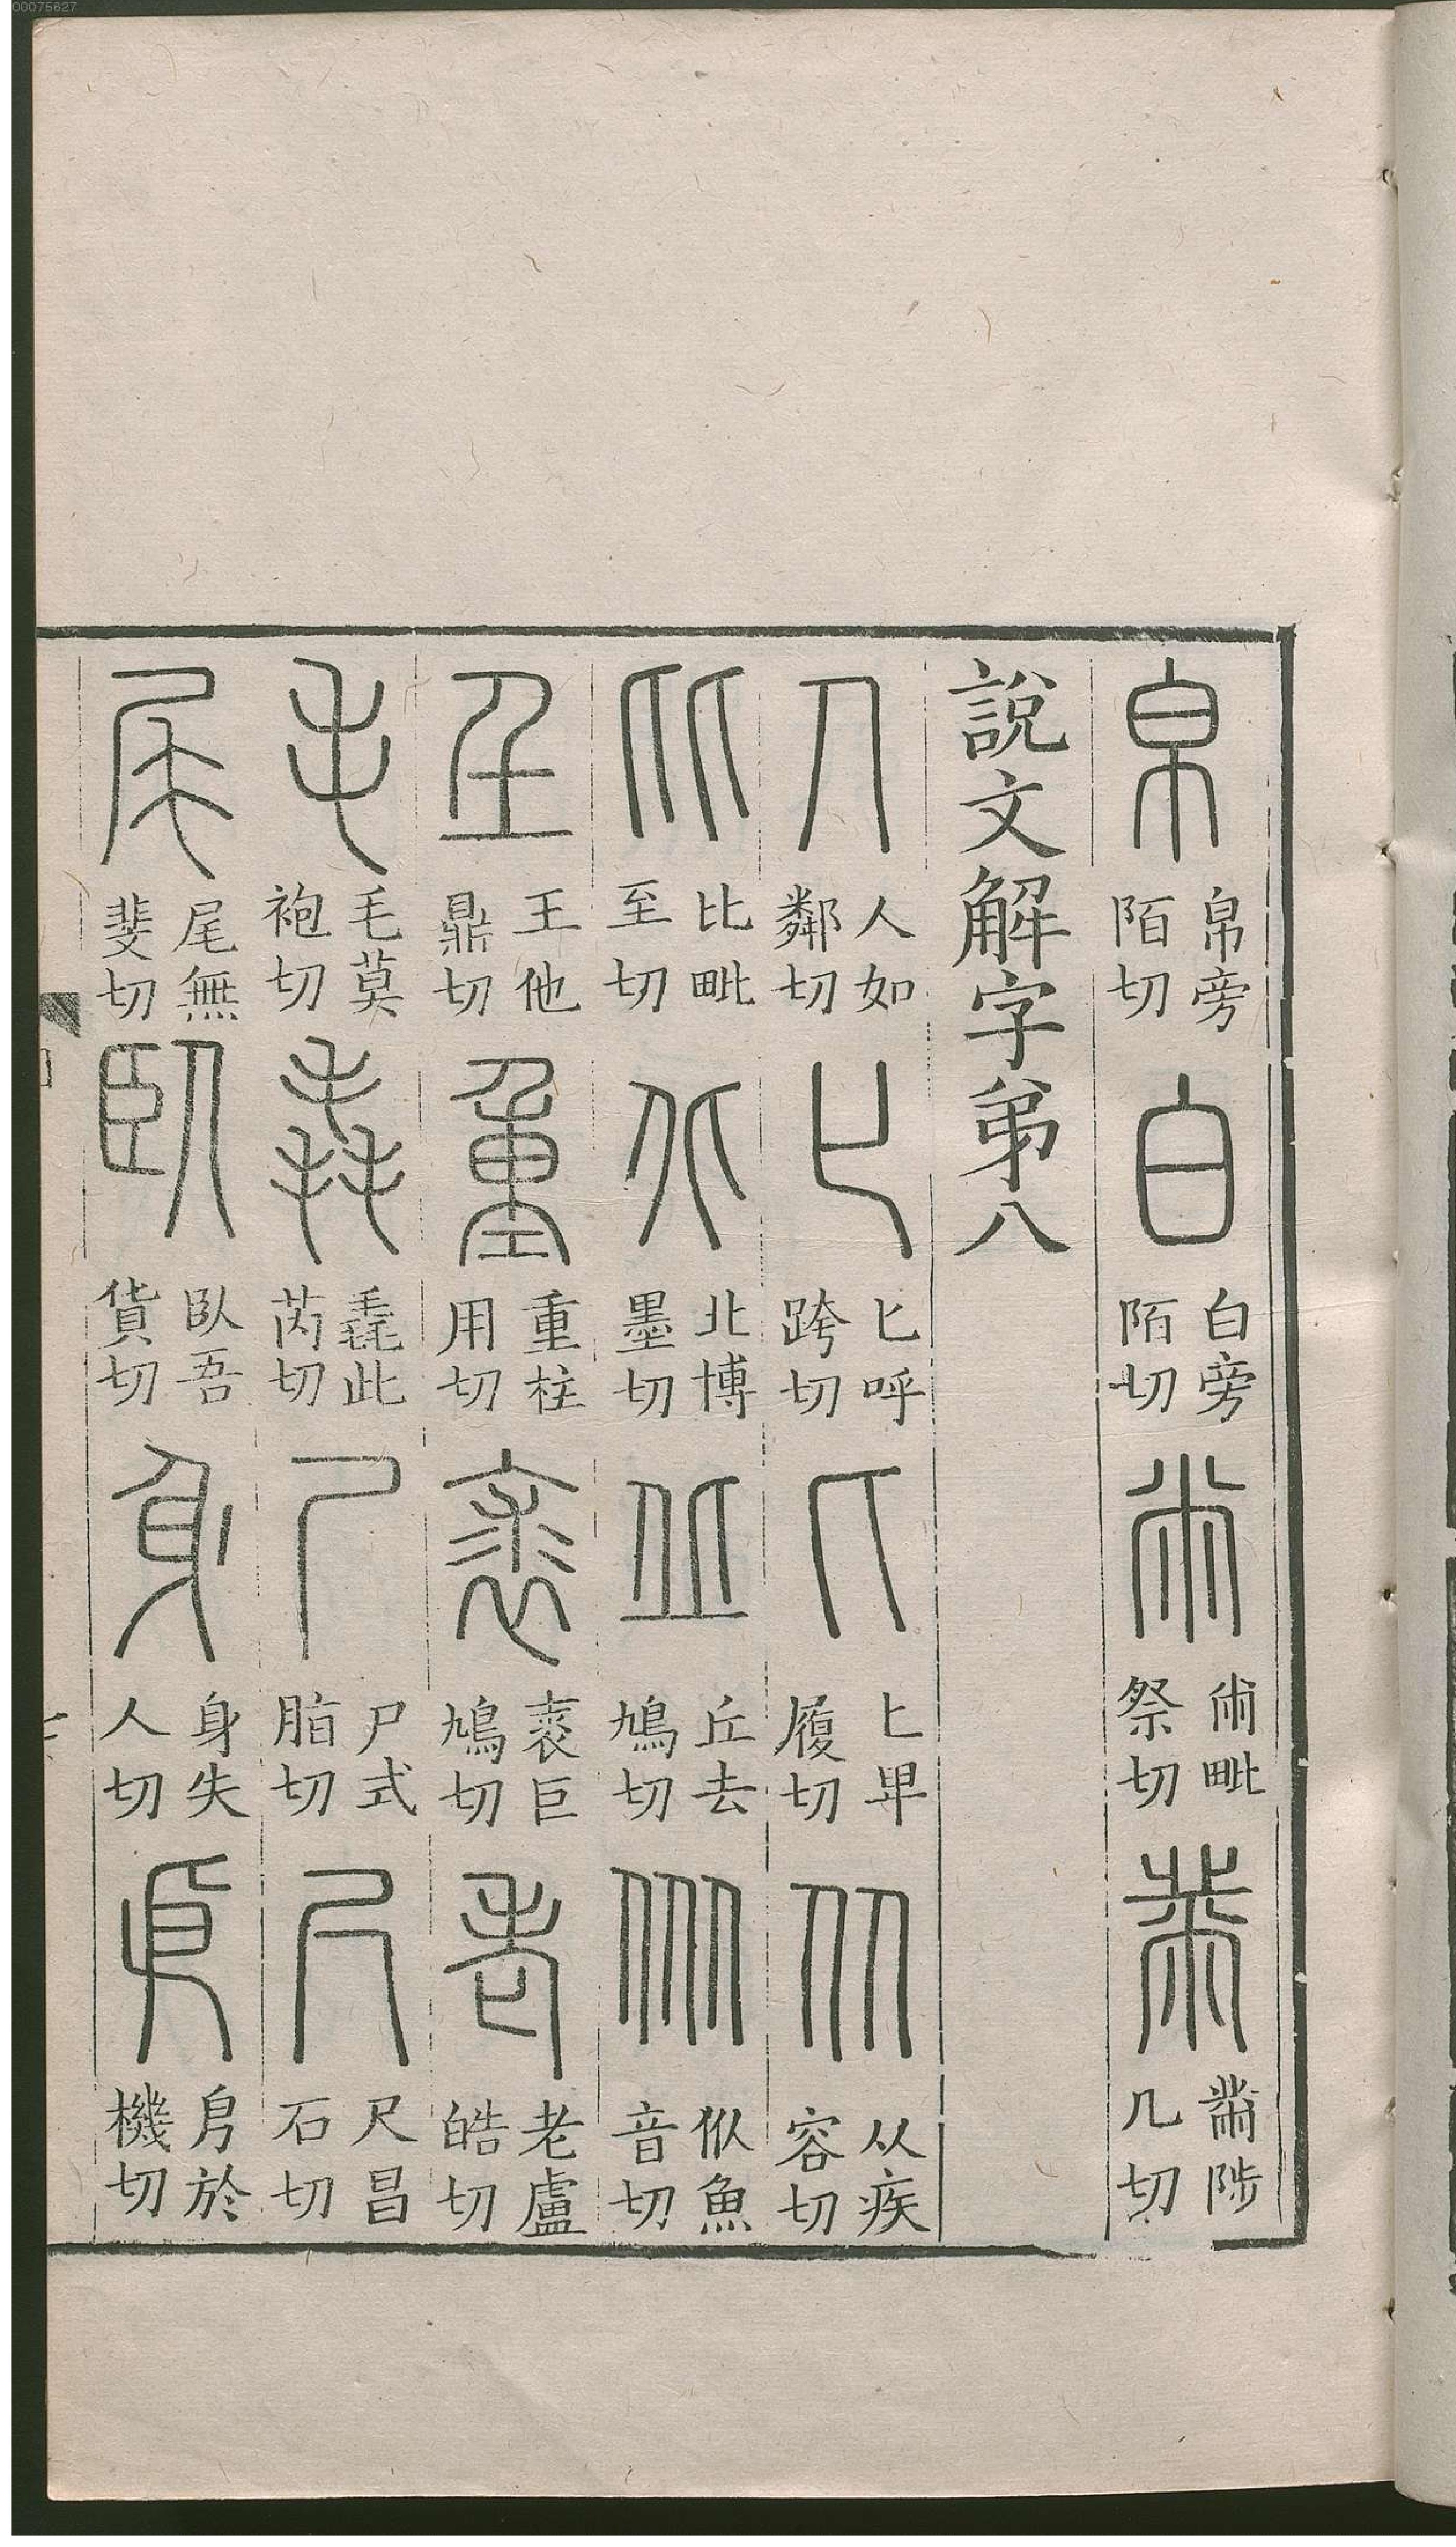 00075627
帛 帛旁陌切 白 白旁陌切 㡀 㡀毗祭切 黹 黹陟几切
說文解字弟八
人 人如鄰切 𠤎 𠤎呼跨切 匕 匕卑履切 从 从疾容切
比 比毗至切 北 北博墨切 丘 丘去鳩切 㐺 㐺魚音切
𡈼 𡈼他鼎切 重 重柱用切 裘 裘巨鳩切 老 老盧皓切
毛 毛莫袍切 毳 毳此芮切 尸 尸式脂切 尺 尺昌石切
尾 尾無斐切 臥 臥吾貨切 身 身失人切 㐆 㐆於機切